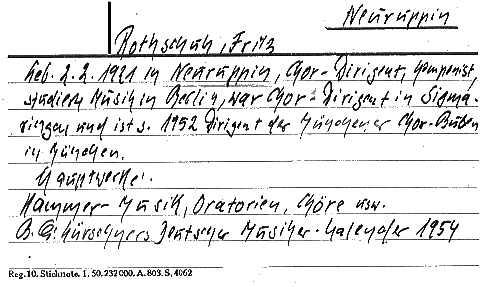 Neuruppin
Rothschuh, Fritz
Geb. 2.2.1921 in Neuruppin, Chor-Dirigent, Komponist,
studierte Musik in Berlin, war Chor-Dirigent in Sigma-
ringen und ist s. 1952 Dirigent der Münchener Chor-Buben
in München.
Hauptwerke:
Kammer-Musik, Oratorien, Chöre usw.
Kürschners Deutscher Musiker-Kalender 1954
Reg. 10. Stichnote. 1. 50. 232 000. A. 803. S. 4062